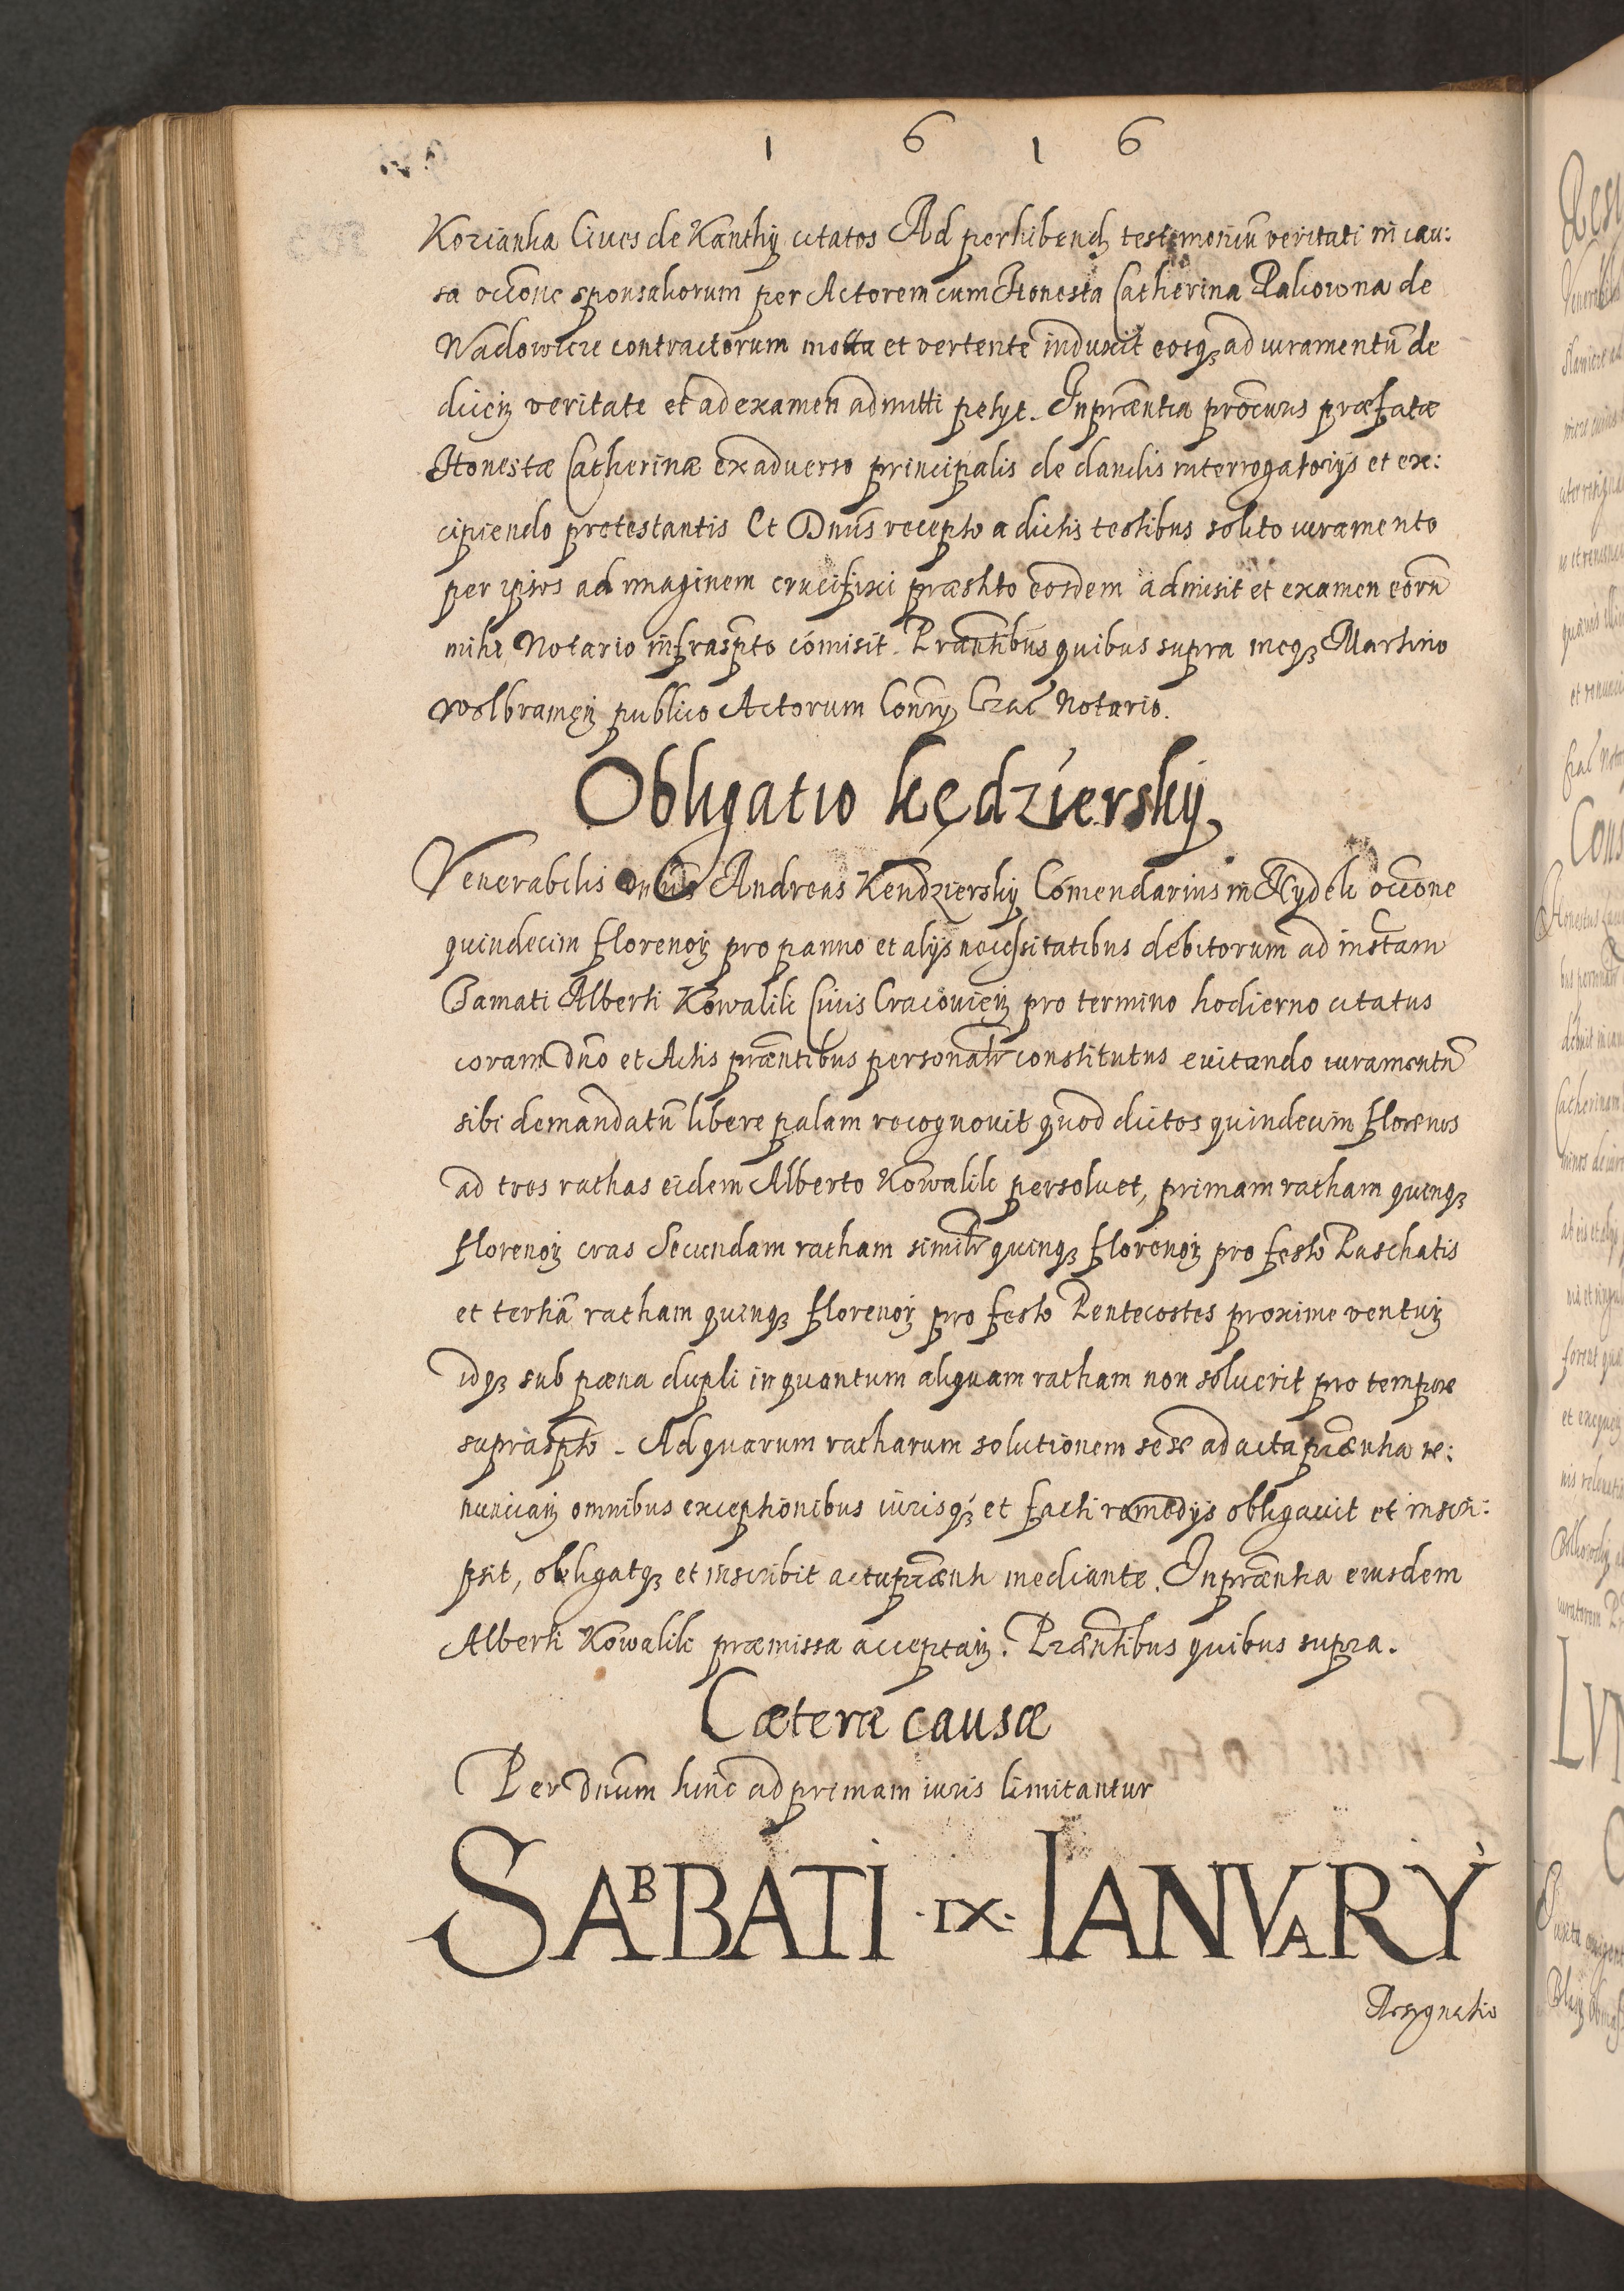 1 6 1 6
Kozianka Ciues de Kanthÿ citatos Ad perhibend testimoniũ veritati in cau:
sa occõne sponsaliorum per Actorem cum Honesta Catherina Paliowna de
Wadowicze contractorum mota et vertente induxit eosqꝫ ad iuramentũ de
diceꝝ veritate et ad examen admitti petyt. In pnãtia procuris præfatæ
Honestæ Catherinæ ex adverso principalis de dandis interrogatorÿs et ex:
cipiendo protestantis Et Dnus recepto a dictis testibus solito iuramento
per ipsos ad imaginem crucifixi præstito eosdem admisit et examen eorũ
mihi Notario infrascpto cõmisit. Præntibus quibus supra meqꝫ Martino
Wolbrameꝝ publico Actorum Conrÿ Crac Notario.
Obligatio kędzierskÿ
Venerabilis Dnus Andreas Kendzierskÿ Cõmendarius in Rydek occõne
quindecim florenoꝝ pro panno et alÿs necessitatibus debitorum ad instam
Famati Alberti Kowalik Ciuis Cracouieꝝ pro termino hodierno citatus
coram Dno et Actis præntibus personalr constitutus euitando iuramentũ
sibi demandatũ libere palam recognouit quod dictos quindecim florenos
ad tres rathas eidem Alberto Kowalik persoluet, primam ratham quinqꝫ
florenoꝝ cras Secundam ratham similr quinqꝫ florenoꝝ pro festo Paschatis
et tertiã ratham quinqꝫ florenoꝝ pro festo Pentecostes proxime ventuꝝ
idqꝫ sub pæna dupli in quantum aliquam ratham non soluerit pro tempore
suprascpto. Ad quarum ratharum solutionem sese ad acta præntia re:
nunciaꝝ omnibus exceptionibus iurisqꝫ et facti remedÿs obligauit et inscri:
psit, obligatqꝫ et inscribit actu prænti mediante. In præntia eiusdem
Alberti Kowalik præmissa acceptaꝝ. Præntibus quibus supra.
Cæteræ causæ
Per Dnum hinc ad primam iuris limitantur
SABBATI · IX · IANVARŸ
Resignatio